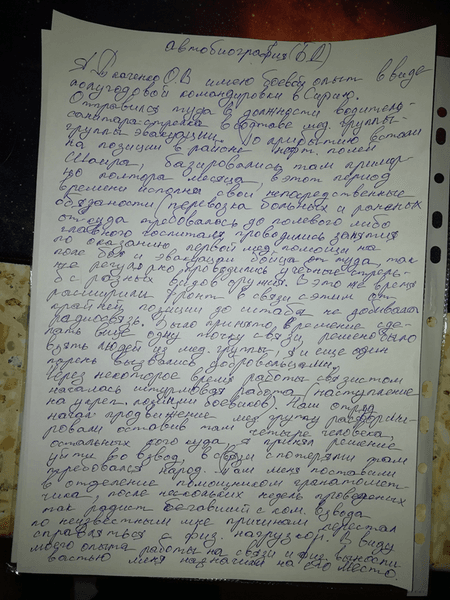 автобиография (Б.О)
Я Дюаченко О.В имею боевой опыт в виде
полугодовой командировки в Сирию.
Отправился туда в должности водитель-
санитара-стрелка в составе мед. группы-
группы эвакуации. По прибытию встали
на позиции в районе нефт. полей
Шаира, базировались там пример-
но полтора месяца, в этот период
времени исполнял свои непосредственные
обязаности (перевозка больных и раненых
откуда требовалось до полевого либо
главного госпиталя, проводились занятия
по оказанию первой мед. помощи на
поле боя и эвакуации бойца от туда, так
же регулярно проводились учебные стрель-
б с разных видов оружия. В это же время
расширили фронт в связи с этим от
крайней позиции до штаба не добивала
радиосвязь. Было принято в временное сде-
лать еще одну точку связи, решено было
взять людей из мед. группы, я и еще один
парень вызвались добровольцами.
Через некоторое время работы связистом
началась штурмовая работа (наступление
на укреп. позиции боевиков). Наш отряд
начал продвижение мед группу расформи-
ровали оставив там четыре человека,
остальных кого куда, я принял решение
уйти во взвод, в связи с потерями там
требовался народ. Там меня поставили
в отделение помощником гранатомет-
чика, после нескольких недель проведеных
так радист бегавший с ком. взвода
по неизвестным мне причинам перестал
справляться с физ. нагрузкой. В виду
моего опыта работы на связи и физ. выносли
востью меня назначили на его место.